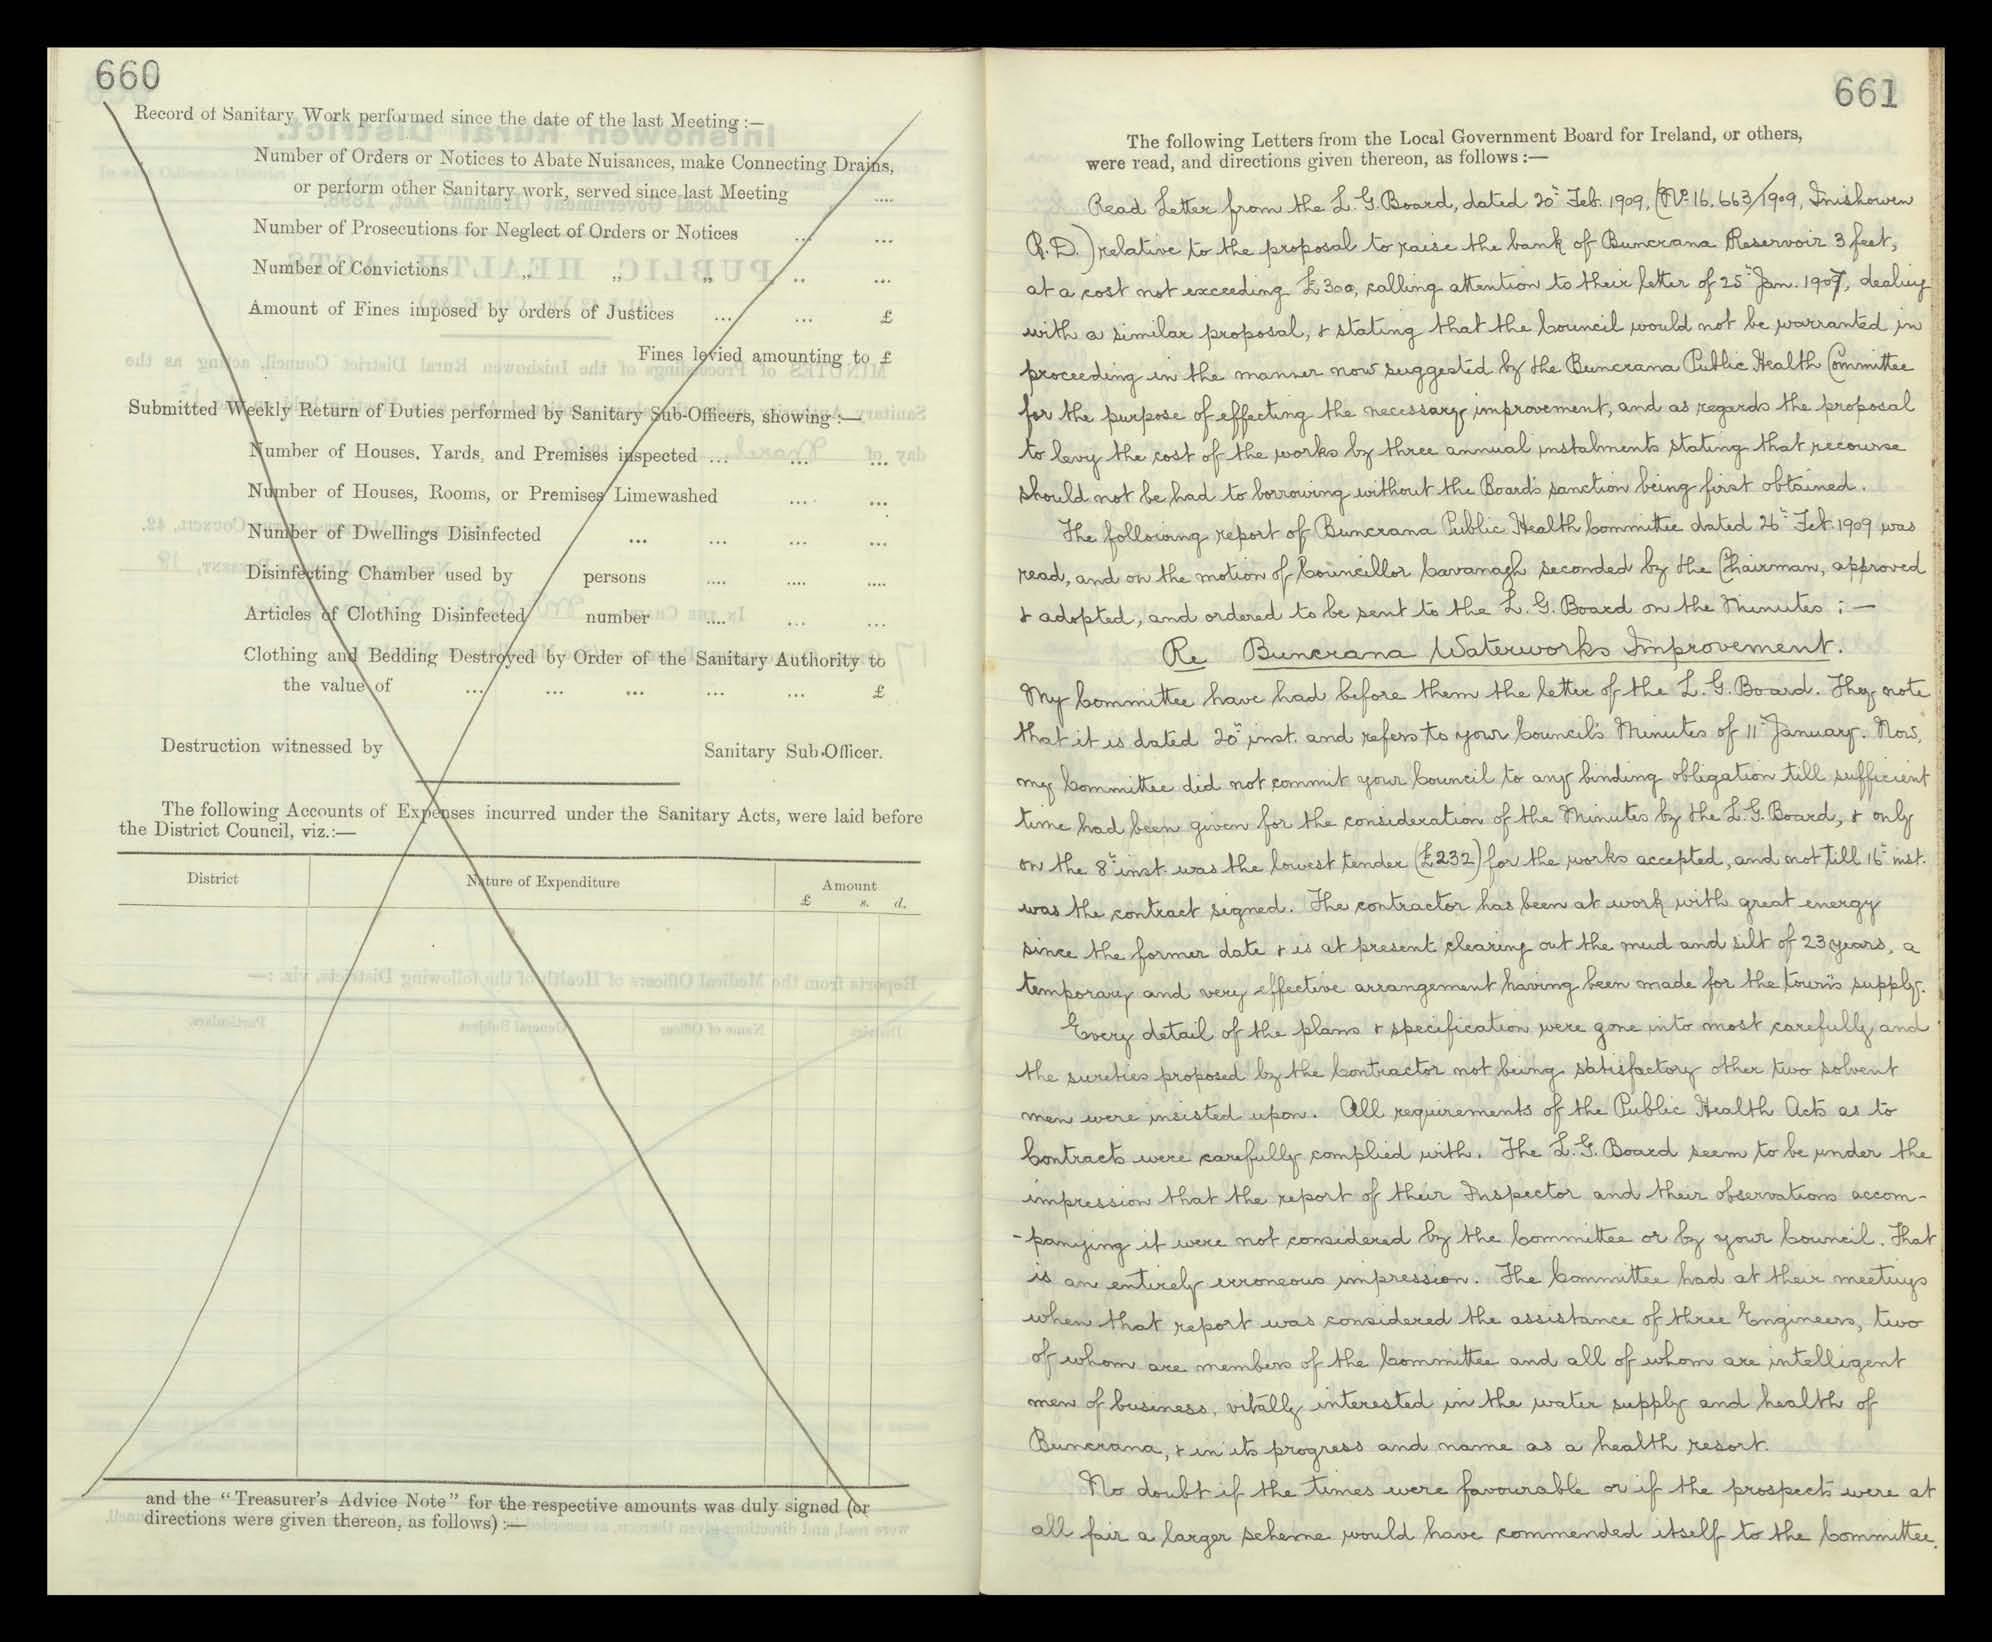 660
Record of Sanitary Work performed since the date of the last Meeting :—
Number of Orders or Notices to Abate Nuisances, make Connecting Drains,
or perform other Sanitary work, served since last Meeting ....
Number of Prosecutions for Neglect of Orders or Notices ... ...
Number of Convictions „ „ „ .. ...
Amount of Fines imposed by orders of Justices ... ... £
Fines levied amounting to £
Submitted Weekly Return of Duties performed by Sanitary Sub-Officers, showing :—
Number of Houses, Yards, and Premises inspected ... ... ...
Number of Houses, Rooms, or Premises Limewashed ... ...
Number of Dwellings Disinfected ... ... ... ...
Disinfecting Chamber used by persons .... .... ....
Articles of Clothing Disinfected number .... ... ...
Clothing and Bedding Destroyed by Order of the Sanitary Authority to
the value of ... ... ... ... ... £
Destruction witnessed by Sanitary Sub-Officer.
The following Accounts of Expenses incurred under the Sanitary Acts, were laid before
the District Council, viz.:—
District Nature of Expenditure Amount
£ s. d.
and the "Treasurer's Advice Note" for the respective amounts was duly signed (or
directions were given thereon, as follows) :—
661
The following Letters from the Local Government Board for Ireland, or others,
were read, and directions given thereon, as follows :—
Read Letter from the L. G. Board, dated 20th Feb. 1909, (No 16,663/1909, Inishowen
R.D.) relative to the proposal to raise the bank of Buncrana Reservoir 3 feet,
at a cost not exceeding £300, calling attention to their letter of 25th Jan. 1907, dealing
with a similar proposal, & stating that the Council would not be warranted in
proceeding in the manner now suggested by the Buncrana Public Health Committee
for the purpose of effecting the necessary improvement, and as regards the proposal
to levy the cost of the works by three annual instalments stating that recourse
should not be had to borrowing without the Board's sanction being first obtained.
The following report of Buncrana Public Health Committee dated 26th Feb. 1909 was
read, and on the motion of Councillor Cavanagh seconded by the Chairman, approved
& adopted, and ordered to be sent to the L. G. Board on the Minutes :—
Re Buncrana Waterworks Improvement.
My Committee have had before them the letter of the L. G. Board. They note
that it is dated 20th inst. and refers to your Council's Minutes of 11th January. Now,
my Committee did not commit your Council to any binding obligation till sufficient
time had been given for the consideration of the Minutes by the L. G. Board, & only
on the 8th inst. was the lowest tender (£232) for the works accepted, and not till 16th inst.
was the contract signed. The contractor has been at work with great energy
since the former date & is at present clearing out the mud and silt of 23 years, a
temporary and very effective arrangement having been made for the town's supply.
Every detail of the plans & specification were gone into most carefully and
the sureties proposed by the Contractor not being satisfactory other two solvent
men were insisted upon. All requirements of the Public Health Acts as to
Contracts were carefully complied with. The L. G. Board seem to be under the
impression that the report of their Inspector and their observations accom-
-panying it were not considered by the Committee or by your Council. That
is an entirely erroneous impression. The Committee had at their meetings
when that report was considered the assistance of three Engineers, two
of whom are members of the Committee and all of whom are intelligent
men of business, vitally interested in the water supply and health of
Buncrana, & in its progress and name as a health resort.
No doubt if the times were favourable or if the prospects were at
all fair a larger scheme would have commended itself to the Committee.